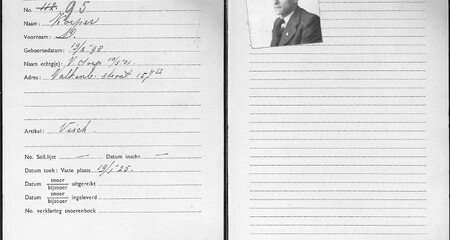 No. 112. 95
Naam: Kuiper
Voornaam: D.
Geboortedatum: 19/2 '98
Naam echtg(e): V. Dorp 19/5 '21
Adres: Valkenb. straat 157 III
Artikel: Visch.
No. Soll.lijst — Datum inschr. —
Datum toek: Vaste plaats 19/1 '25.
Datum snoer
bijsnoer uitgereikt
Datum snoer
bijsnoer ingeleverd
No. verklaring snoerenboek